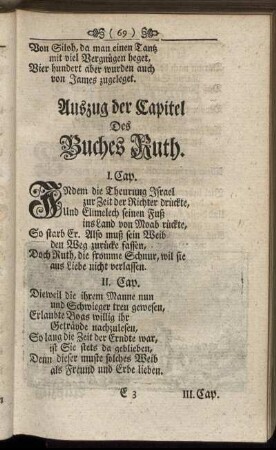 ( 69 )
Von Siloh, da man einen Tantz
mit viel Vergnügen heget.
Vier hundert aber wurden auch
von James zugeleget.
Auszug der Capitel
Des
Buches Ruth.
I. Cap.
INdem die Theurung Israel
zur Zeit der Richter drückte,
Und Elimelech seinen Fuß
ins Land von Moab rückte,
So starb Er. Also muß sein Weib
den Weg zurücke fassen,
Doch Ruth, die fromme Schnur, wil sie
aus Liebe nicht verlassen.
II. Cap.
Dieweil die ihrem Manne nun
und Schwieger treu gewesen,
Erlaubte Boas willig ihr
Geträyde nachzulesen,
So lang die Zeit der Erndte war,
ist Sie stets da geblieben,
Denn dieser muste solches Weib
als Freund und Erbe lieben.
E 3 III. Cap.